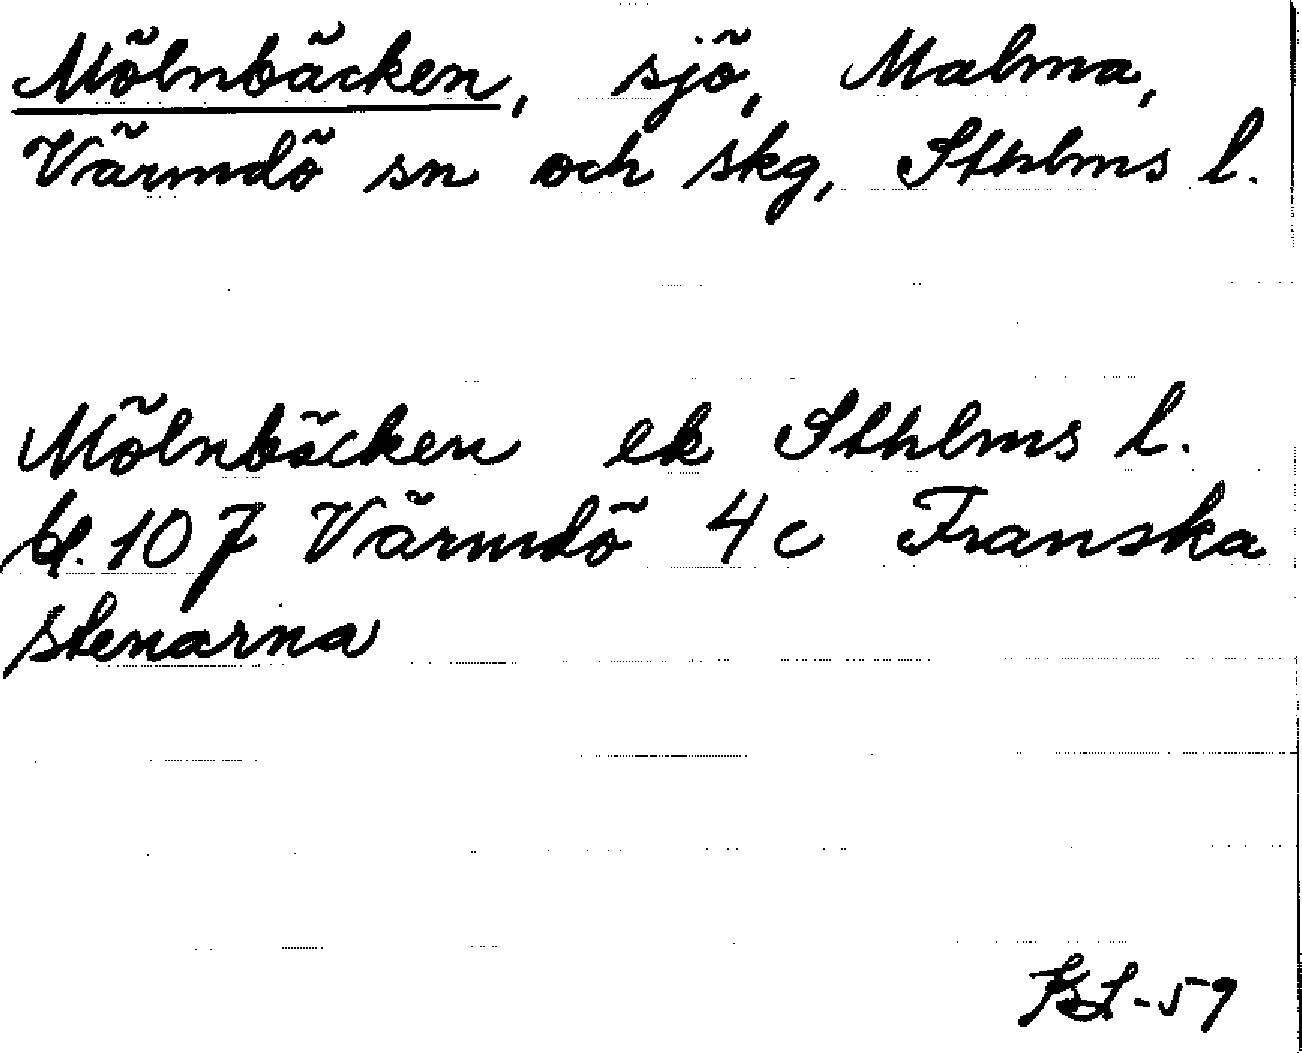 Mölnbäcken, sjö, Malma,
Värmdö sn och skg, Sthlms l.
Mölnbäcken ek Sthlms l.
bl. 107 Värmdö 4c Franska
stenarna